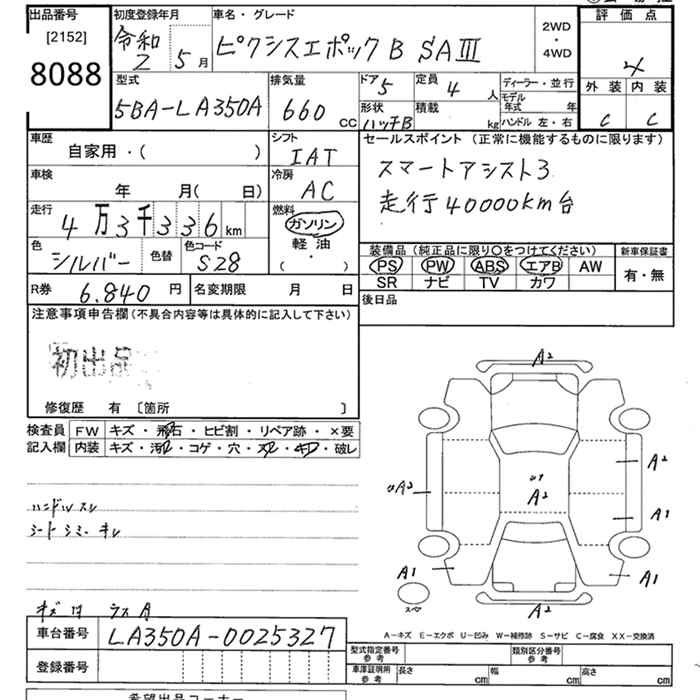 出品番号
[2152]
8088
初度登録年月
令和
2 5月
車名・グレード
ピクシスエポック B SAⅢ
2WD
・
4WD
評価点
4
外装 内装
C C
型式
5BA-LA350A
排気量
660 CC
ドア 5
形状
ハッチB
定員 4 人
積載 kg
ディーラー・並行
モデル年式 年
ハンドル 左・右
車歴
自家用・( )
シフト
IAT
車検
年 月( 日)
冷房
AC
走行
4万3千336km
燃料
ガソリン
軽油
( ・ )
色
シルバー
色替
色コード
S28
R券 6.840 円
名変期限 月 日
セールスポイント (正常に機能するものに限ります)
スマートアシスト3
走行40000km台
装備品 (純正品に限り〇をつけてください)
新車保証書
PS PW ABS エアB AW
SR ナビ TV カワ
有・無
後日品
注意事項申告欄(不具合内容等は具体的に記入して下さい)
初出品
修復歴 有 [箇所 ]
検査員
記入欄
FW キズ・飛石・ヒビ割・リペア跡・×要
内装 キズ・汚れ・コゲ・穴・スレ・キレ・破レ
ハンドルスレ
シートシミー キレ
A2
A2
A2
A2
A1
A1
A1
スペ
A2
A-キズ E-エクボ U-凹み W-補修跡 S-サビ C-腐食 XX-交換済
車台番号 LA350A-0025327
登録番号
型式指定番号
参考
類別区分番号
参考
車庫証明用
参考
長さ cm
幅 cm
高さ cm
希望出品コーナー